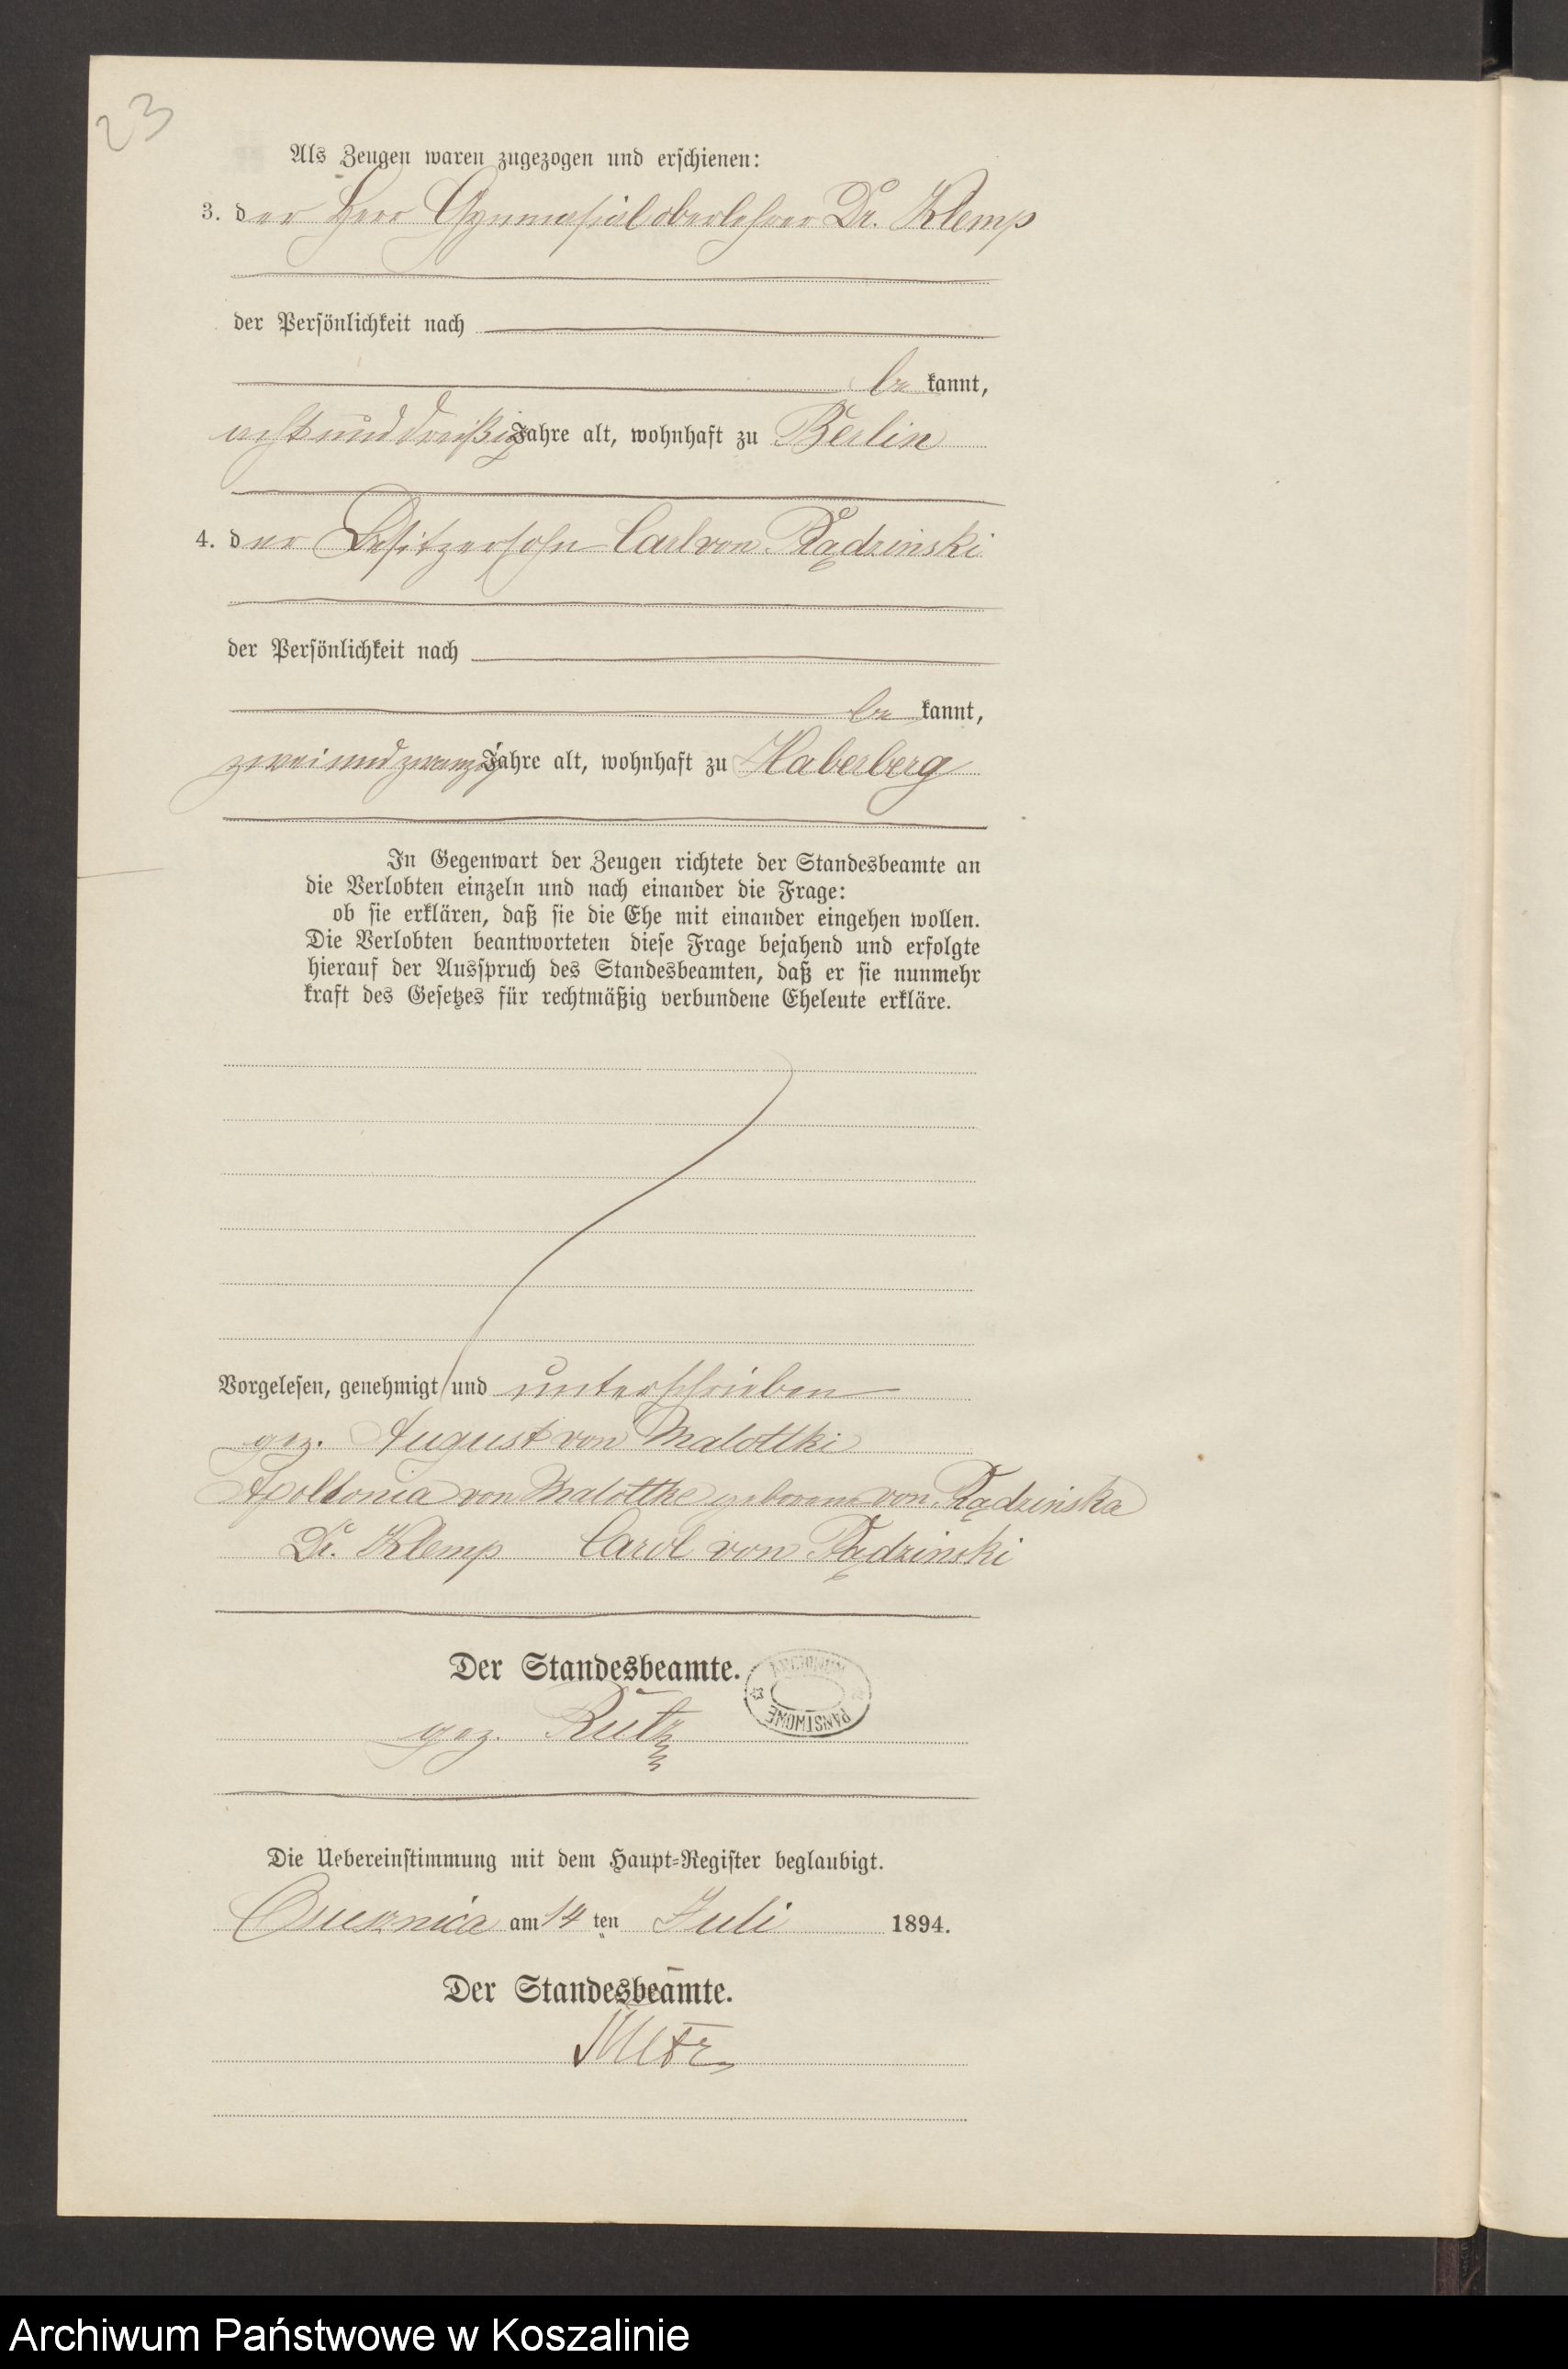 23
Als Zeugen waren zugezogen und erschienen:
3. der Herr Gymnasialoberlehrer Dr. Klemp
der Persönlichkeit nach
be kannt,
achtunddreißig Jahre alt, wohnhaft zu Berlin
4. der Besitzersohn Carl von Rądzinski
der Persönlichkeit nach
be kannt,
zweiundzwanzig Jahre alt, wohnhaft zu Haberberg
In Gegenwart der Zeugen richtete der Standesbeamte an
die Verlobten einzeln und nach einander die Frage:
ob sie erklären, daß sie die Ehe mit einander eingehen wollen.
Die Verlobten beantworteten diese Frage bejahend und erfolgte
hierauf der Ausspruch des Standesbeamten, daß er sie nunmehr
kraft des Gesetzes für rechtmäßig verbundene Eheleute erkläre.
Vorgelesen, genehmigt und unterschrieben
gez. August von Malottki
Apollonia von Malottke geborene von Rądzinska
Dr. Klemp Carol von Rądzinski
Der Standesbeamte.
ARCHIWUM PAŃSTWOWE
gez. Rutz
Die Uebereinstimmung mit dem Haupt-Register beglaubigt.
am 14 ten Juli 1894.
Der Standesbeamte.
Archiwum Państwowe w Koszalinie